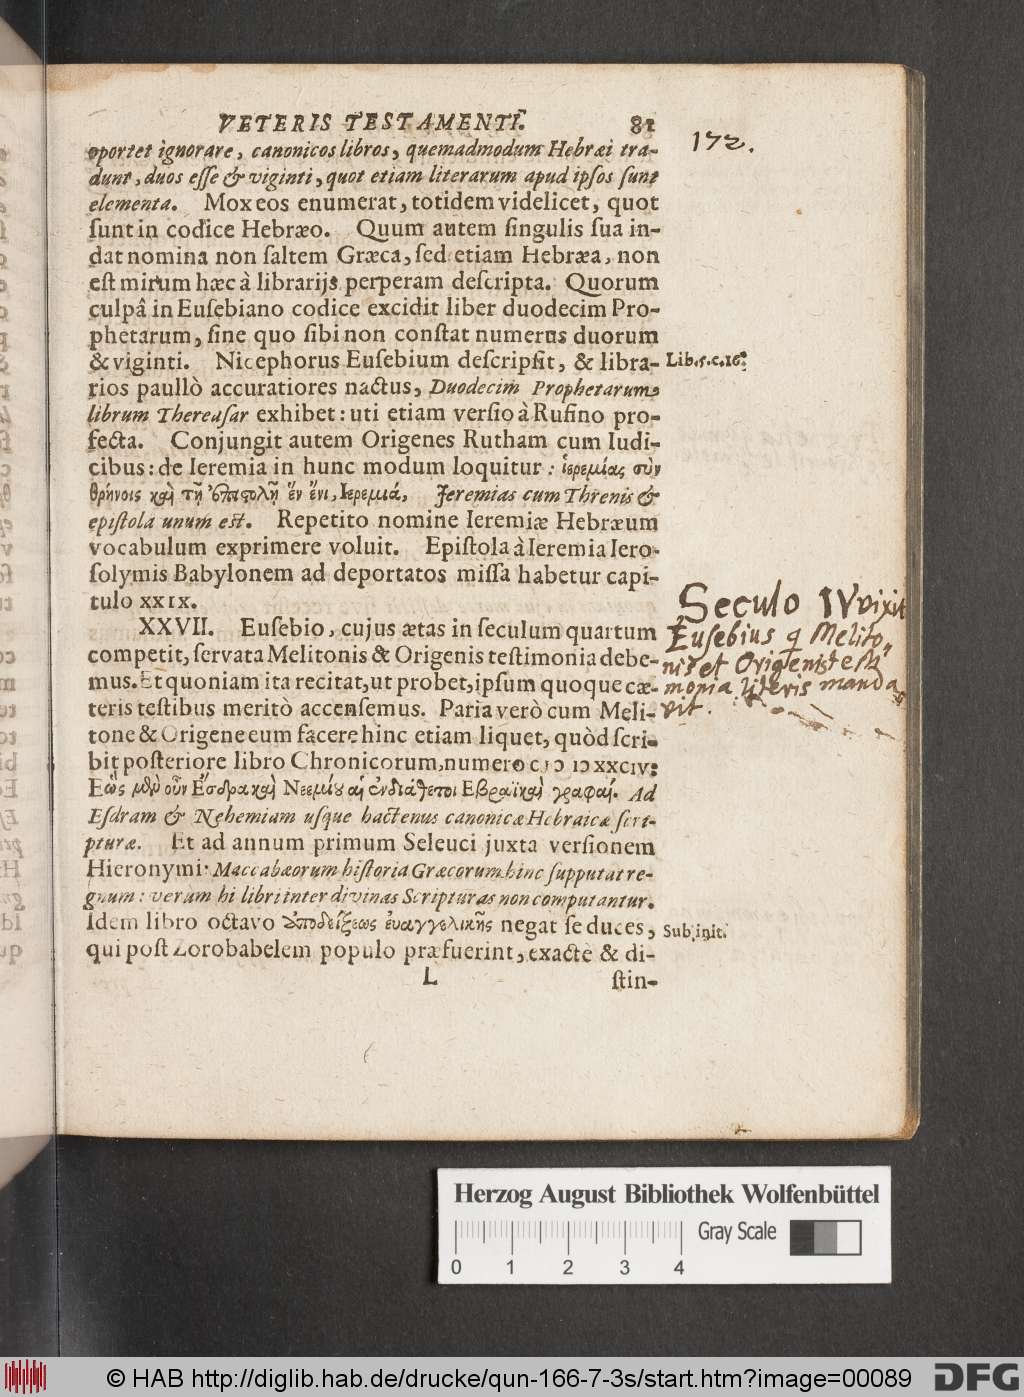 VETERIS TESTAMENTI. 81
172.
oportet ignorare, canonicos libros, quemadmodum Hebræi tra-
dunt, duos eſſe & viginti, quot etiam literarum apud ipſos ſunt
elementa. Mox eos enumerat, totidem videlicet, quot
ſunt in codice Hebræo. Quum autem ſingulis ſua in-
dat nomina non ſaltem Græca, ſed etiam Hebræa, non
eſt mirum hæc à librarijs perperam deſcripta. Quorum
culpâ in Euſebiano codice excidit liber duodecim Pro-
phetarum, ſine quo ſibi non conſtat numerus duorum
& viginti. Nicephorus Euſebium deſcripſit, & libra-
Lib. 5. c. 16.
rios paullò accuratiores nactus, Duodecim Prophetarum
librum Thereaſar exhibet: uti etiam verſio à Rufino pro-
fecta. Conjungit autem Origenes Rutham cum Iudi-
cibus: de Ieremia in hunc modum loquitur: ἱερεμίας σὺν
θρήνοις καὶ τῇ ἐπιστολῇ ἕν ἑνι, Ιερεμιά, Jeremias cum Threnis &
epiſtola unum eſt. Repetito nomine Ieremiæ Hebræum
vocabulum exprimere voluit. Epiſtola à Ieremia Iero-
ſolymis Babylonem ad deportatos miſſa habetur capi-
tulo XXIX.
XXVII. Euſebio, cujus ætas in ſeculum quartum
competit, ſervata Melitonis & Origenis teſtimonia debe-
mus. Et quoniam ita recitat, ut probet, ipſum quoque cæ-
teris teſtibus meritò accenſemus. Paria verò cum Meli-
tone & Origene eum facere hinc etiam liquet, quòd ſcri-
bit poſteriore libro Chronicorum, numero CIↃ IↃXXCIV:
Seculo IV vixit
Euſebius q Melito
nis et Origenis teſti
monia literis manda
vit.
Εὼς μὲν οὖν Εσδρα καὶ Νεεμίου αἱ ἐνδιάθετοι Εβραϊκαὶ γραφαί. Ad
Eſdram & Nehemiam uſque hactenus canonicæ Hebraicæ ſcri-
pturæ. Et ad annum primum Seleuci juxta verſionem
Hieronymi: Maccabæorum hiſtoria Græcorum hinc ſupputat re-
gnum: verum hi libri inter divinas Scripturas non computantur.
Idem libro octavo ἀποδείξεως ἐυαγγελικῆς negat ſe duces,
Sub init.
qui poſt Zorobabelem populo præfuerint, exactè & di-
L ſtin-
Herzog August Bibliothek Wolfenbüttel
Gray Scale
0 1 2 3 4
© HAB http://diglib.hab.de/drucke/qun-166-7-3s/start.htm?image=00089
DFG